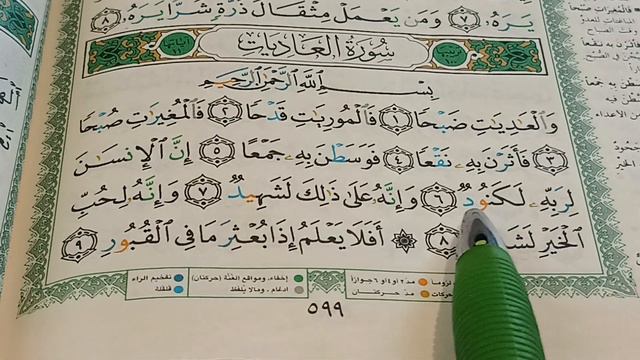 يَرَهُۥ ٧ وَمَن يَعْمَلْ مِثْقَالَ ذَرَّةٍ شَرًّا يَرَهُۥ ٨
سُورَةُ الْعَادِيَات
بِسْمِ ٱللَّهِ ٱلرَّحْمَٰنِ ٱلرَّحِيمِ
وَٱلْعَٰدِيَٰتِ ضَبْحًا ١ فَٱلْمُورِيَٰتِ قَدْحًا ٢ فَٱلْمُغِيرَٰتِ صُبْحًا
٣ فَأَثَرْنَ بِهِۦ نَقْعًا ٤ فَوَسَطْنَ بِهِۦ جَمْعًا ٥ إِنَّ ٱلْإِنسَٰنَ
لِرَبِّهِۦ لَكَنُودٌ ٦ وَإِنَّهُۥ عَلَىٰ ذَٰلِكَ لَشَهِيدٌ ٧ وَإِنَّهُۥ لِحُبِّ
ٱلْخَيْرِ ٨ أَفَلَا يَعْلَمُ إِذَا بُعْثِرَ مَا فِى ٱلْقُبُورِ ٩
مدّ ٢ أو ٤ أو ٦ جوازاً إخفاء، ومواقع الغُنَّة (حركتان) تفخيم الراء
مدّ حركتان إدغام، ومالا يُلفَظ قلقلة
٥٩٩